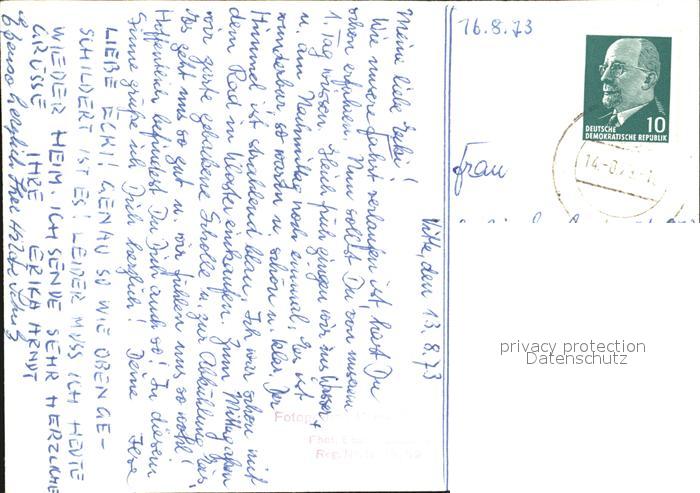 Vitte, den 13.8.73
Meine liebe Ecki!
Wie unsere Fahrt verlaufen ist, hast Du
schon erfahren. Nun sollst Du von unserem
1. Tag wissen. Gleich früh gingen wir zum Wasser
u. am Nachmittag noch einmal. Es ist
wunderbar so warm u. schön u. klar. Der
Himmel ist strahlend blau. Ich war schon mit
dem Rad in Kloster einkaufen. Zum Mittag aßen
wir gestern gebratene Scholle u. zur Abkühlung Eis.
Es geht uns so gut u. wir fühlen uns so wohl!
Hoffentlich befindest Du Dich auch so! In diesem
Sinne grüße ich Dich herzlich! Deine
LIEBE ECKI! GENAU SO WIE OBEN GE-
SCHILDERT IST ES! LEIDER MUSS ICH HEUTE
WIEDER HEIM. ICH SENDE SEHR HERZLICHE
GRÜSSE IHRE ERIKA ARNDT
Ebenso herzlich
16.8.73
DEUTSCHE
DEMOKRATISCHE REPUBLIK 10
Frau
privacy protection
Datenschutz